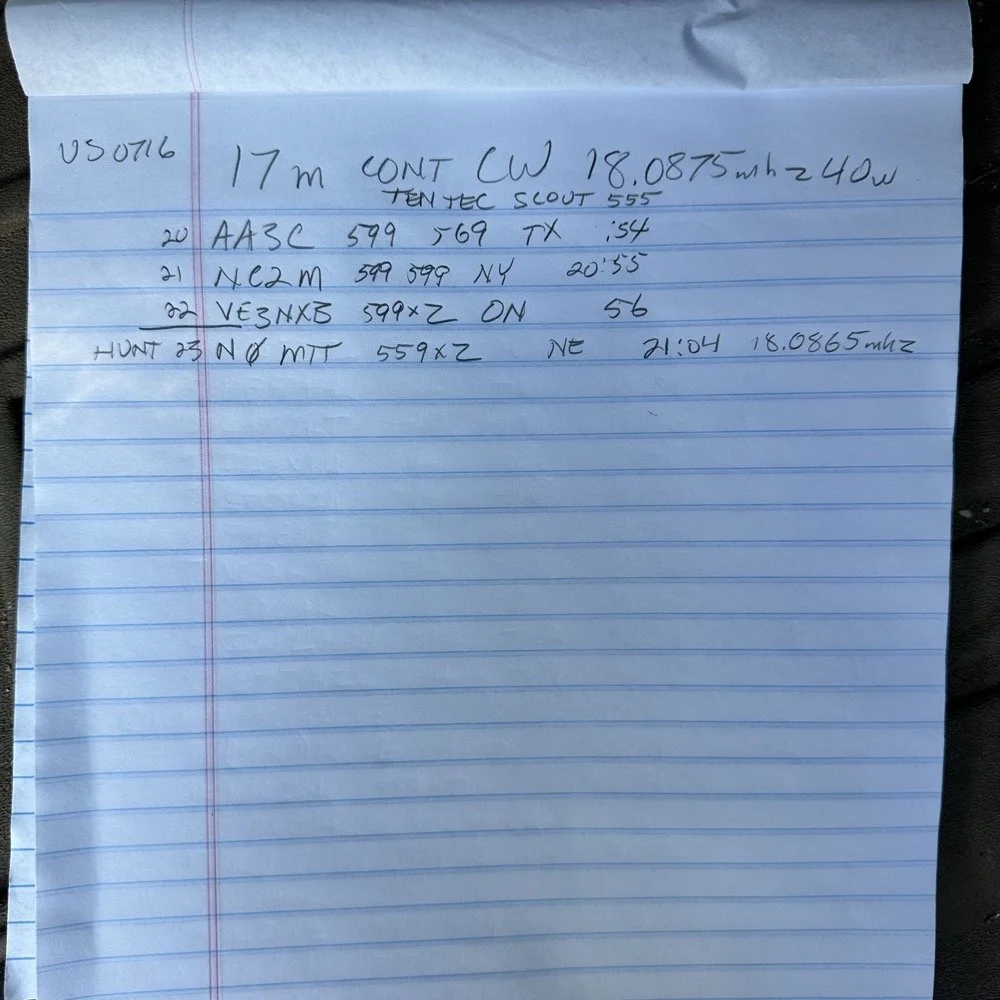 US0716 17m CONT CW 18.0875mhz 40w
TEN TEC SCOUT 555
20 AA3C 599 569 TX :54
21 NC2M 599 599 NY 20:55
22 VE3NXB 599x2 ON 56
HUNT 23 NØMTT 559x2 NE 21:04 18.0865mhz